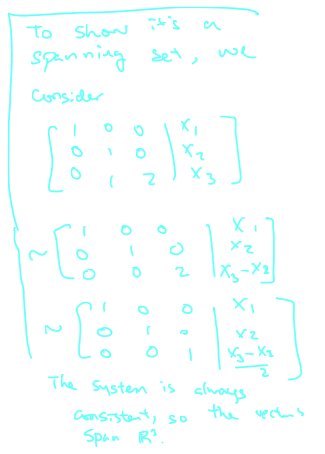 To show it's a
spanning set, we
Consider
[ 1 0 0 | x₁ ]
[ 0 1 0 | x₂ ]
[ 0 1 2 | x₃ ]
~ [ 1 0 0 | x₁ ]
[ 0 1 0 | x₂ ]
[ 0 0 2 | x₃-x₂ ]
~ [ 1 0 0 | x₁ ]
[ 0 1 0 | x₂ ]
[ 0 0 1 | (x₃-x₂)/2 ]
The system is always
consistent, so the vectors
Span R³.